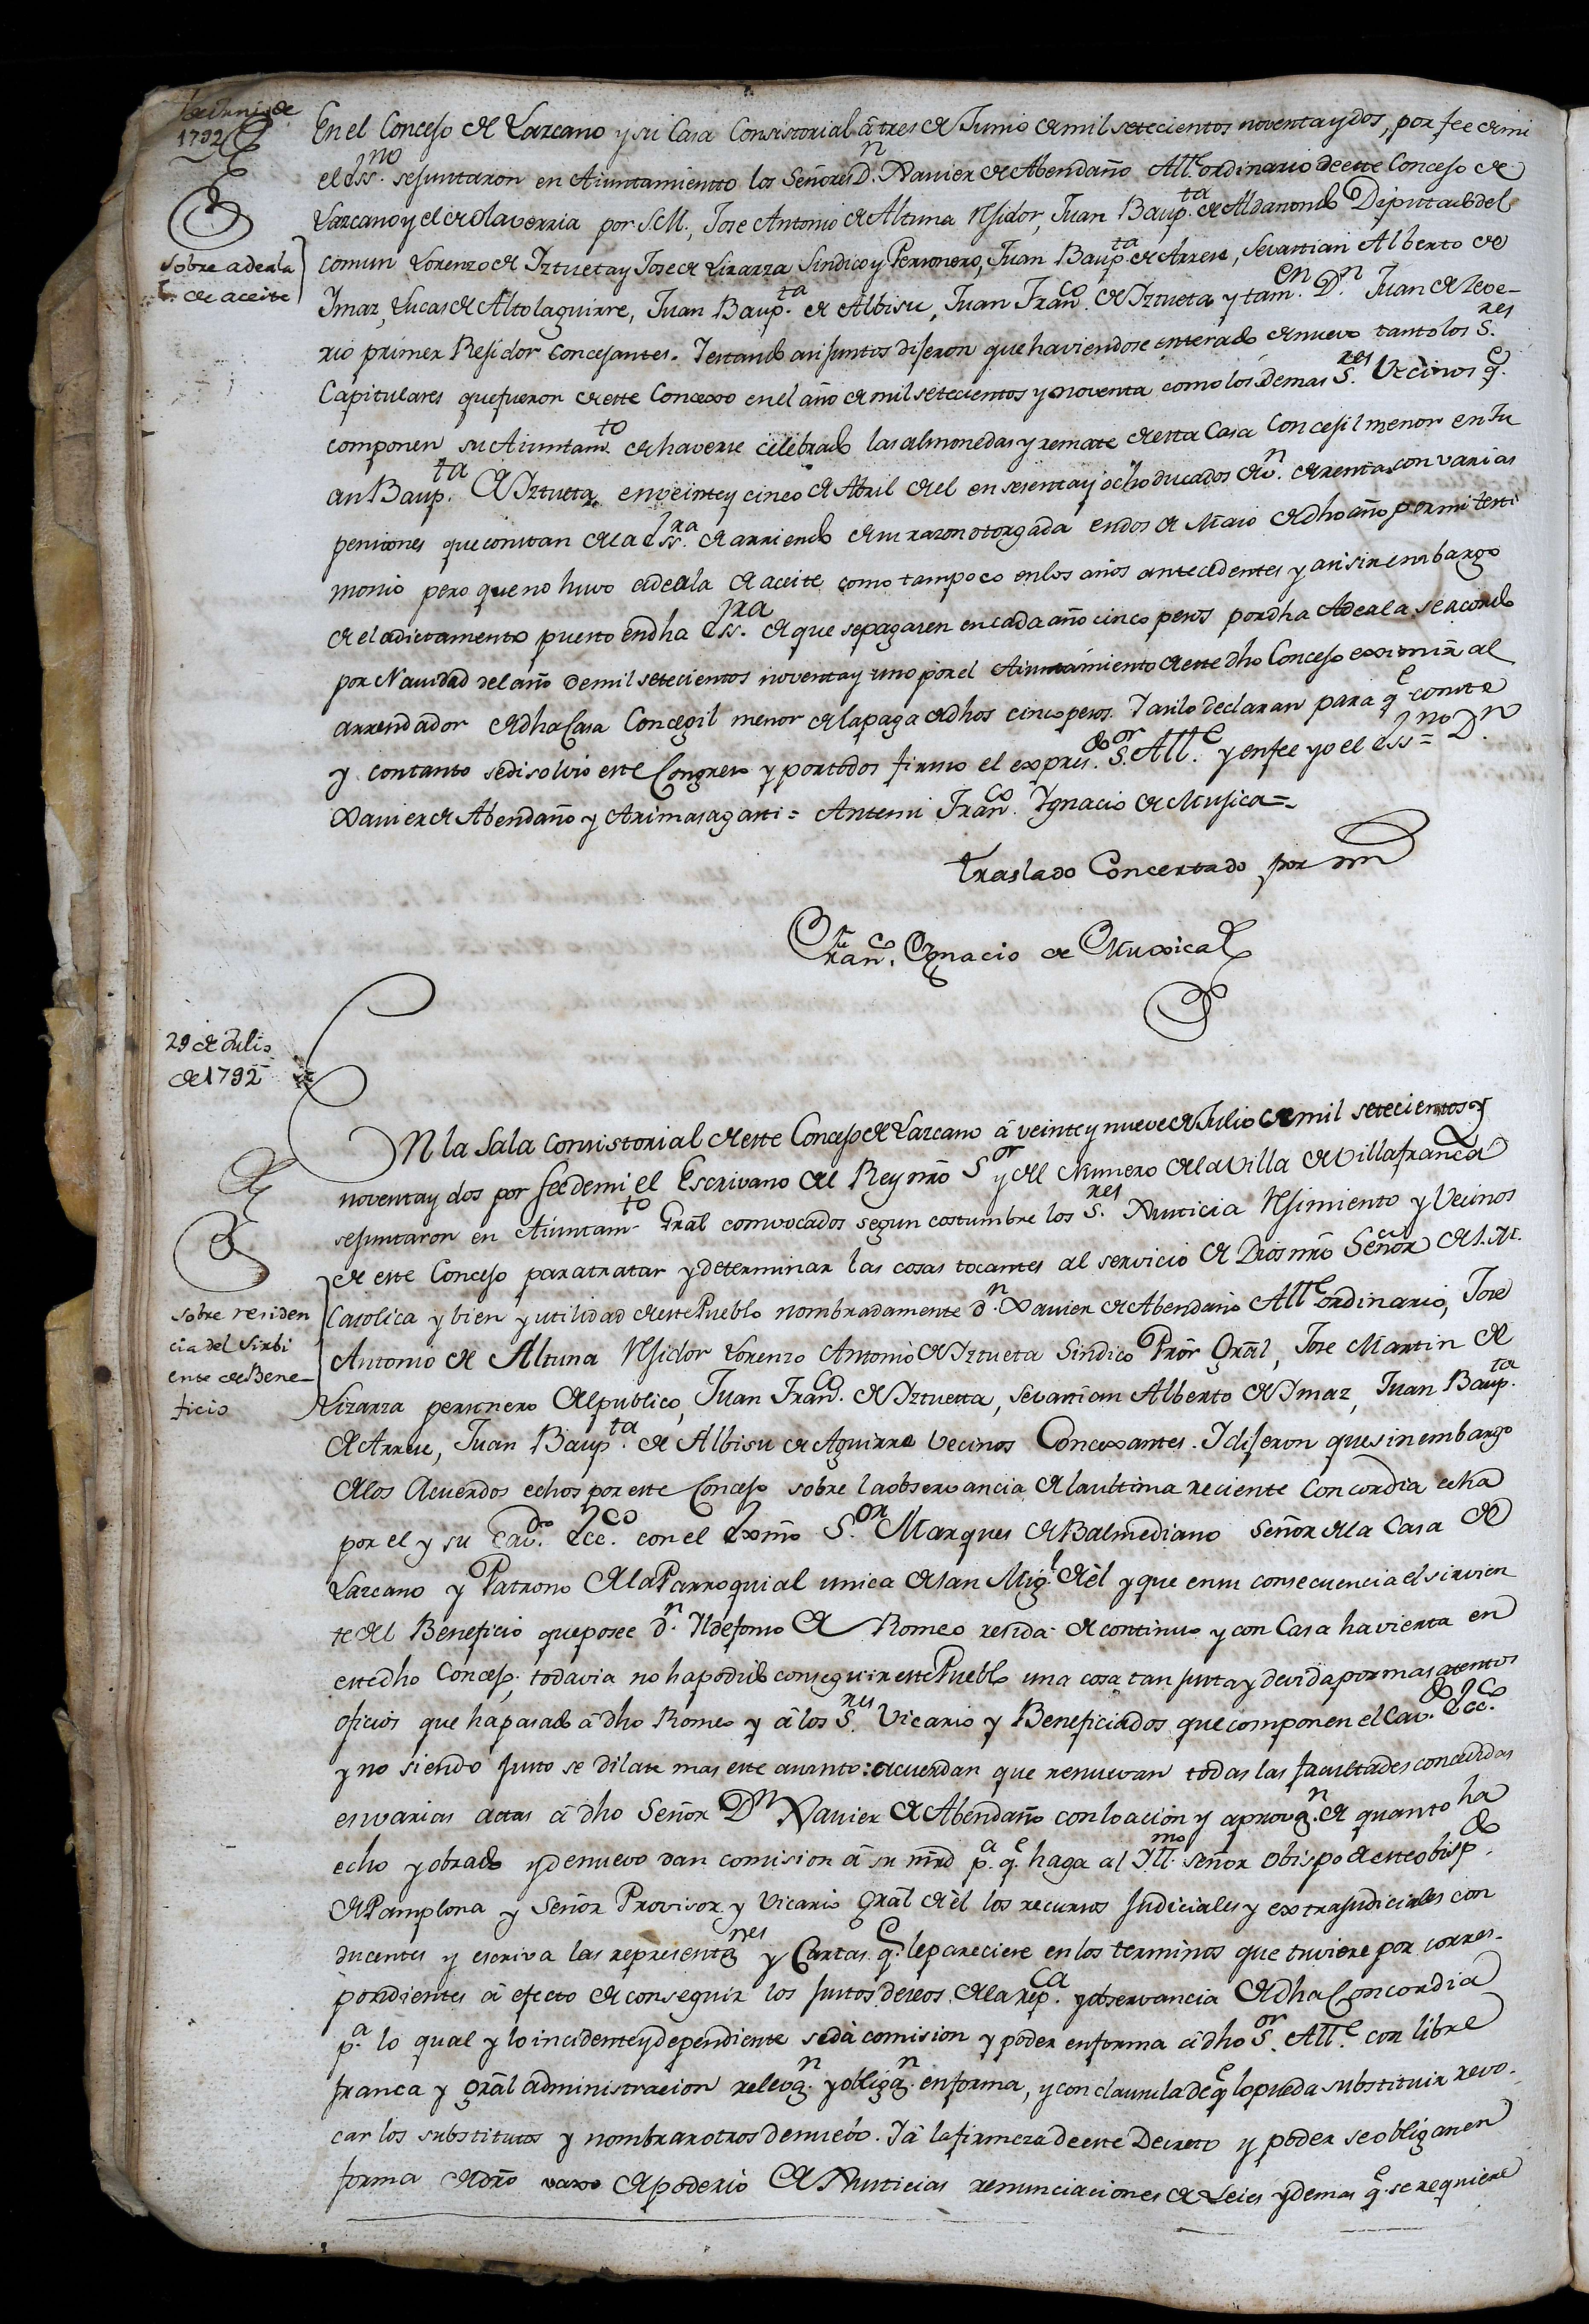 de Junio de
1792
En el Concejo de Lazcano y su Casa Consistorial â tres de Junio de mil setecientos noventa y dos, por fee de mi
el Ess.no se juntaron en Aiuntamiento los Señores D.n Xavier de Abendaño All.e ordinario de este Concejo de
Lazcano y el de Olaverria por S.M., Jose Antonio de Altuna Rejidor, Juan Baup.ta de Aldanondo Diputado del
sobre adeala
de aceite
comun Lorenzo de Yztueta y Jose de Lizarza Sindico y Personero, Juan Baup.ta de Arrese, Sevastian Alberto de
Ymaz, Lucas de Altolaguirre, Juan Baup.ta de Albisu, Juan Fran.co de Yztueta y tam.en D.n Juan de Leve-
rio primer Rejidor concejantes. Y estando asi juntos dijeron que haviendose enterado de nuevo tanto los S.res
Capitulares que fueron de este Concexo en el año de mil setecientos y noventa como los demas S.res Vecinos q.e
componen su Aiuntam.to de haverse celebrado las almonedas y remate de esta Casa Concejil menor en Ju
an Baup.ta de Yztueta en veinte y cinco de Abril de el en sesenta y ocho ducados de v.n de renta con varias
pensiones que constan de la Ess.ra de arriendo de su razon otorgada en dos de Maio de dho año por mi testi
monio pero que no huvo adeala de aceite como tampoco en los años antecedentes y asi sin embargo
de el adictamento puesto en dha Ess.ra de que se pagasen en cada año cinco pesos por dha Adeala se acordo
por Navidad del año de mil setecientos noventa y uno por el Aiuntamiento de este dho Concejo eximir al
arrendador de dha Casa Concegil menor de la paga de dhos cinco pesos. Y asi lo declaran para q.e conste
y con tanto se disolvio este Congreso y por todos firmo el expres.do S.or All.e y en fee yo el Ess.no = D.n
Xavier de Abendaño y Arimasagasti = Ante mi Fran.co Ygnacio de Musica =
Traslado Concertado por mi
Fran.co Ygnacio de Muxica
29 de Julio
de 1792
En la Sala Consistorial de este Concejo de Lazcano â veinte y nueve de Julio de mil setecientos y
noventa y dos por fee de mi el Escrivano de el Rey nrõ S.or y del Numero de la Villa de Villafranca
se juntaron en Aiuntam.to Grãl convocados segun costumbre los S.res Justicia Rejimiento y Vecinos
de este Concejo para tratar y determinar las cosas tocantes al servicio de Dios nrõ Señor de S.M.
sobre residen
cia del sirbi
ente de Bene-
ficio
Catolica y bien y utilidad de este Pueblo nombradamente d.n Xavier de Abendaño All.e ordinario, Jose
Antonio de Altuna Rejidor Lorenzo Antonio de Yztueta Sindico Prõr Grãl, Jose Martin de
Lizarza personero del publico, Juan Fran.co de Yztuetta, Sevastian Alberto de Ymaz, Juan Baup.ta
de Arrese, Juan Baup.ta de Albisu de Aguirre Vecinos Concexantes. Y dijeron que sin embargo
de los Acuerdos echos por este Concejo sobre la observancia de la ultima reciente Concordia echa
por el y su Cav.do Ecc.co con el Exmõ S.or Marques de Balmediano Señor de la Casa de
Lazcano y Patrono de la Parroquial unica de San Mig.l de èl y que en su consecuencia el sirvien
te del Beneficio que posee d.n Yldefonso de Romeo resida de continuo y con Casa havierta en
este dho Concejo, todavia no ha podido conseguir este Pueblo una cosa tan justa y devida por mas atentos
oficios que ha pasado â dho Romeo y â los S.res Vicario y Beneficiados que componen el Cav.do Ecc.co
y no siendo justo se dilate mas este asunto: acuerdan que renuevan todas las facultades concedidas
en varias actas â dho Señor D.n Xavier de Abendaño con loacion y aprova.n de quanto ha
echo y obrado y de nuevo dan comision â su mrd p.a q.e haga al Yll.mo señor Obispo de este obisp.do
de Pamplona y Señor Provisor y Vicario Grãl de èl los recursos Judiciales y extrajudiciales con
ducentes y escriva las representa.nes y Cartas q.e le pareciere en los terminos que tuviere por corres-
pondientes â efecto de conseguir los justos deseos de la rep.ca y observancia de dha Concordia
p.a lo qual y lo incidente y dependiente se dà comision y poder en forma â dho S.or All.e con libre
franca y grãl administracion releva.n y obliga.n en forma, y con clausula de q.e lo pueda substituir revo-
car los substitutos y nombrar otros de nuevo. Y â la firmeza de este Decreto y poder se obligan en
forma de drõ vaxo de poderio de Justicias renunciaciones de Leies y demas q.e se requiere